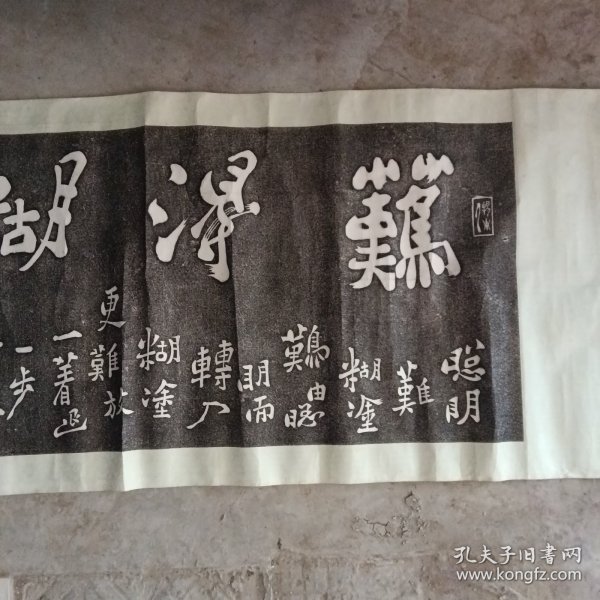 難得糊
聰明
難
糊塗
難由聰
明而
轉入
糊塗
更難放
一著退
一步
孔夫子旧書网
www.kongfz.com